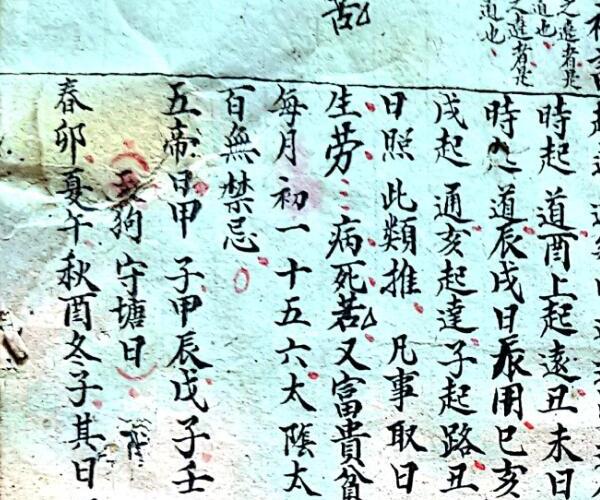 之達者是
道也
苦
時起道酉上起遠丑未日
時起道辰戌日辰用巳亥
戌起通亥起達子起路丑
日照此類推凡事取日
生劳病死若又富貴貧
每月初一十五六太陰太
百無禁忌
五帝日甲子甲辰戊子壬
狗守塘日
春卯夏午秋酉冬子其日